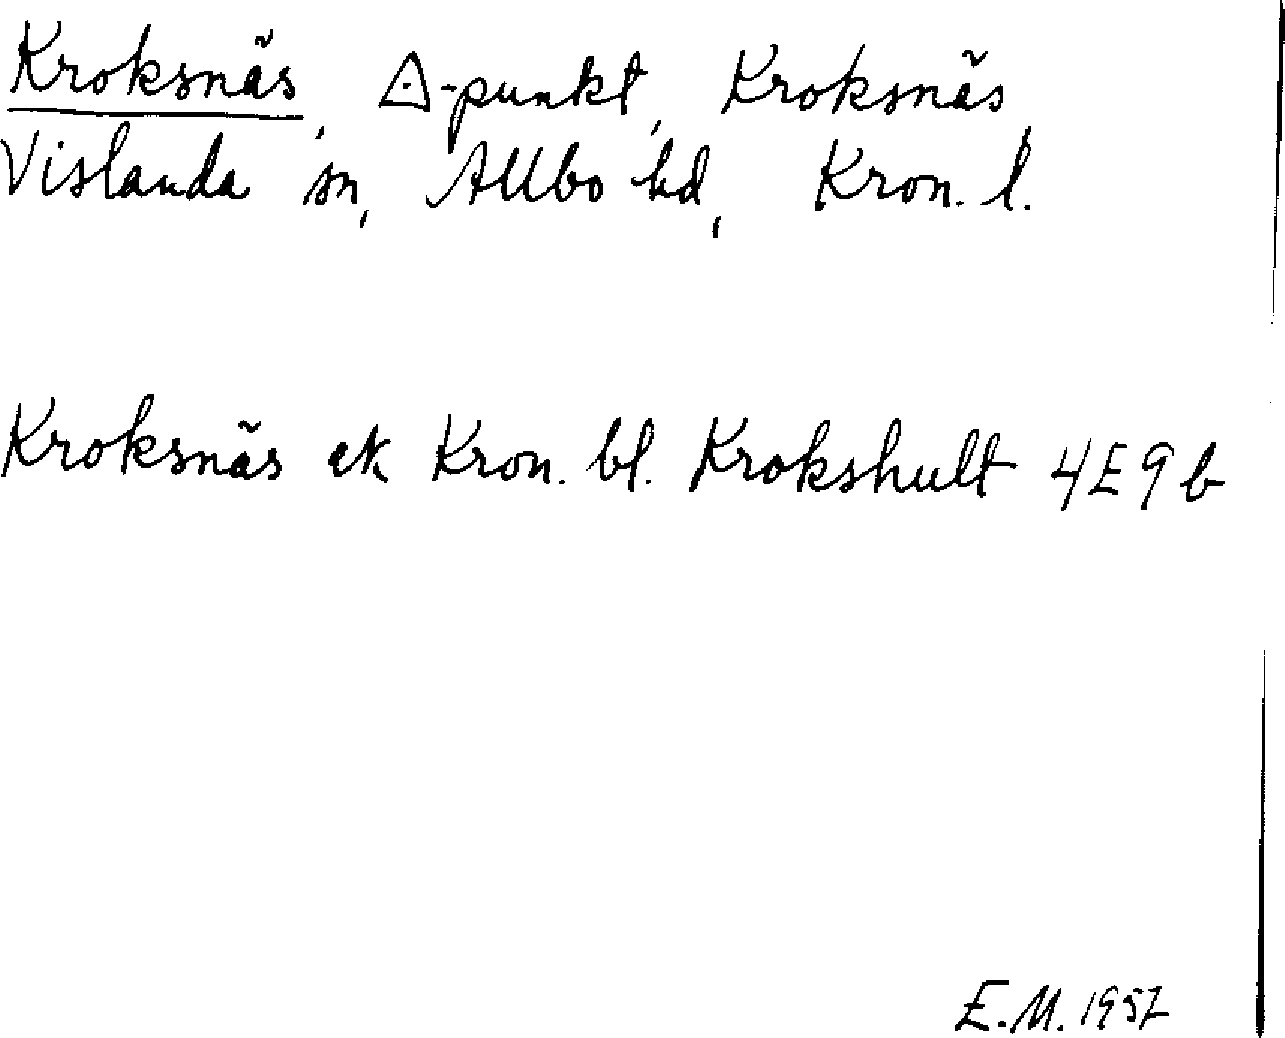 Kroksnäs, ◬-punkt, Kroksnäs,
Vislanda sn, Allbo hd, Kron. l.
Kroksnäs ek Kron. bl. Krokshult 4E9b
E.M. 1957